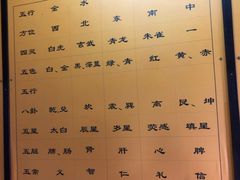 五行 金 水
方位 西 北 东 南 中
四灵 白虎 玄武 青龙 朱雀 一
五色 白、金 黑、深蓝 绿、青 红 黄、赤
五行
八卦 乾、兑 坎 震、巽 离 艮、坤
五星 太白 辰星 岁星 荧惑 填星
五脏 肺、肠 肾 肝 心 脾
五常 义 智 仁 礼 信